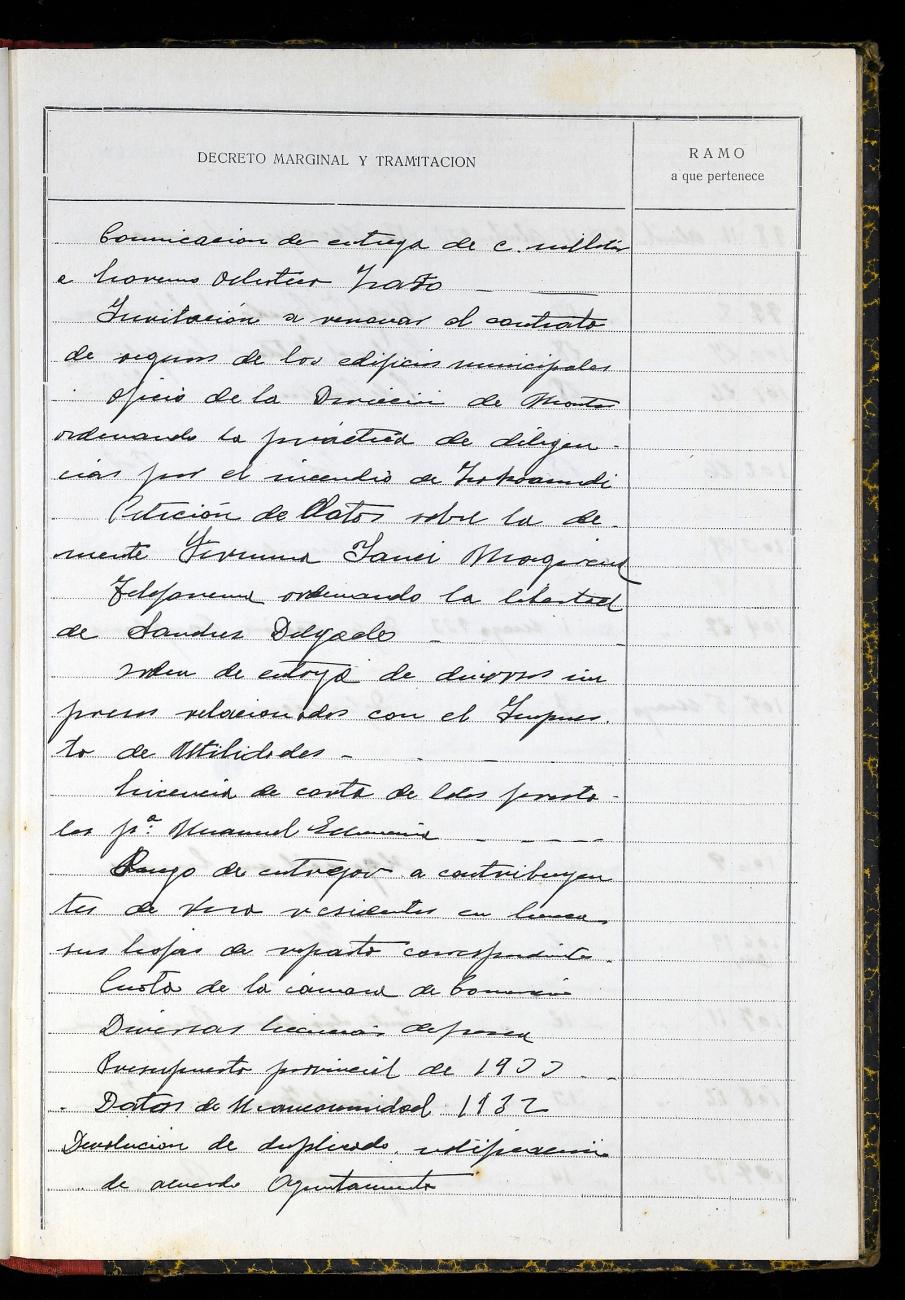 DECRETO MARGINAL Y TRAMITACION
RAMO
a que pertenece
Comunicacion de entrega de c. militar
a
Invitación a renovar el contrato
de seguros de los edificios municipales
Oficio de la Dirección de Montes
ordenando la práctica de diligen-
cias por el incendio de
Petición de Datos sobre la de-
mente
Telefonema ordenando la libertad
de Delgado
orden de entrega de diversos im
presos relacionados con el Impues-
to de Utilidades -
Licencia de
pª. Manuel
Ruego de entregar a contribuyen
tes de Vera residentes en
sus hojas de reparto correspondientes.
Cuota de la cámara de Comercio
Diversas licencias de pesca
Presupuesto provincial de 1933
Datos de Mancomunidad 1932
Devolucion de duplicado notificacion
de acuerdo Ayuntamiento